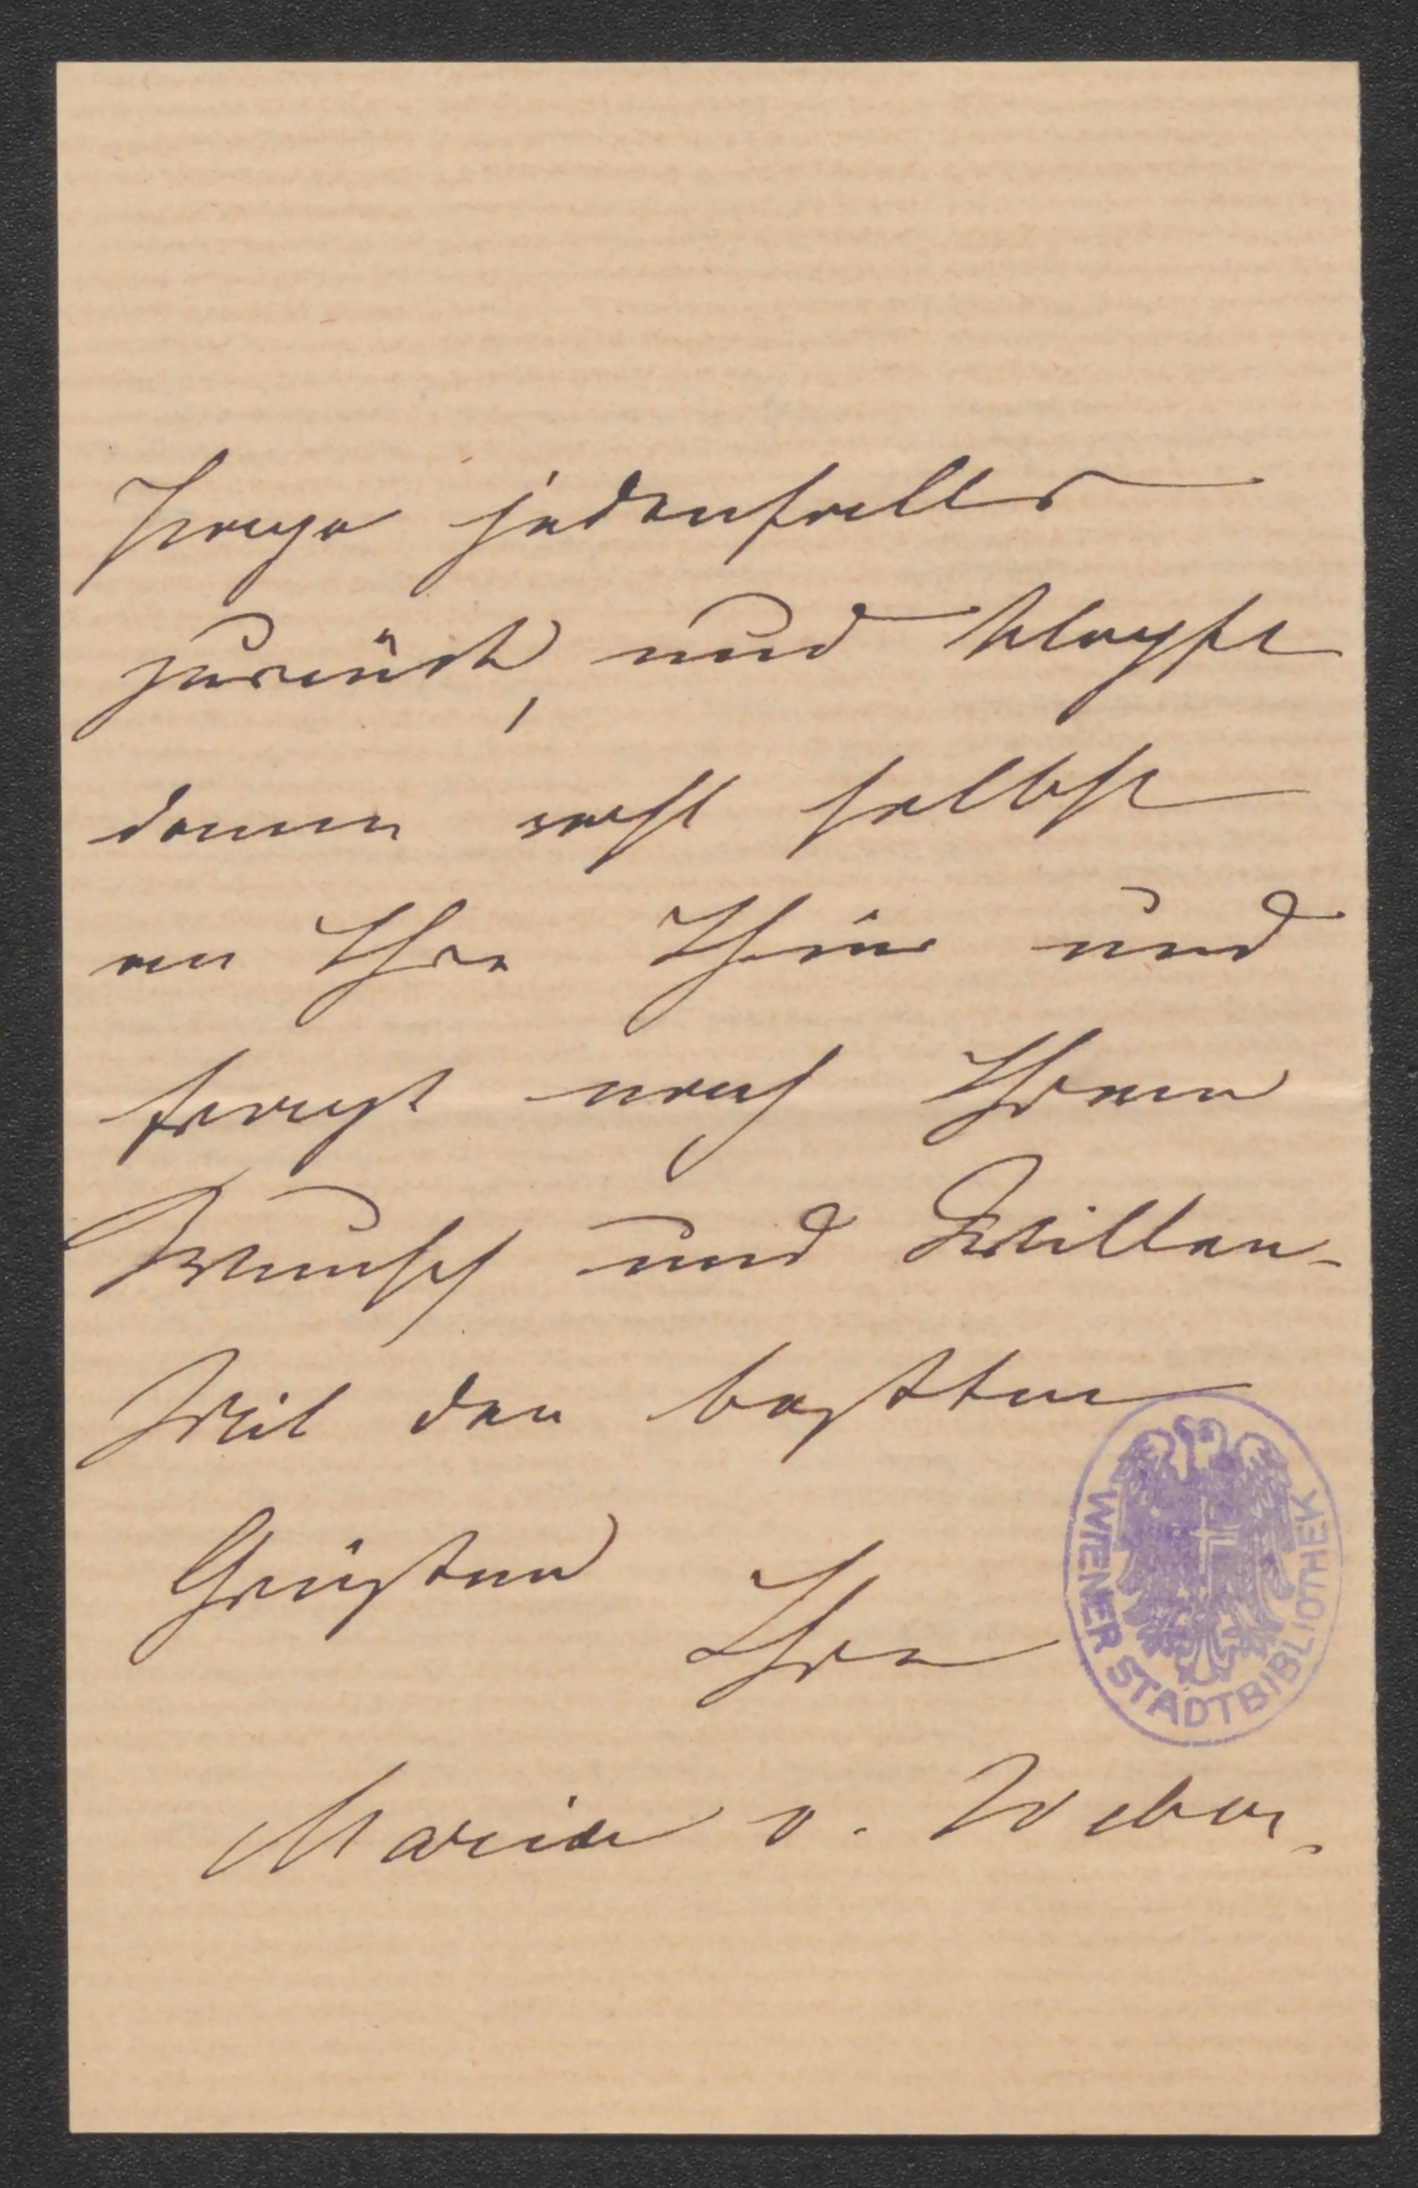 Tage jedenfalls
zurück, und klopft
dann erst selbst
an Ihre Thür und
fragt nach Ihrem
Wunsch und Willen.
Mit den besten
Grüßen Ihre
Marie v. Weber.
WIENER STADTBIBLIOTHEK